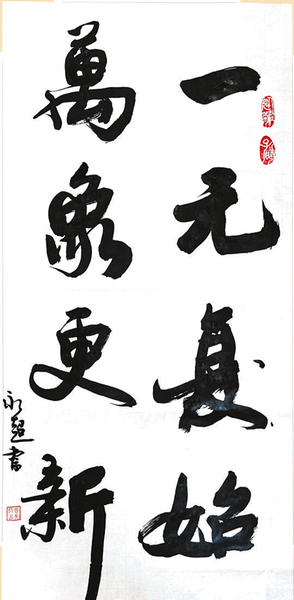 一元复始
萬象更新
永超書